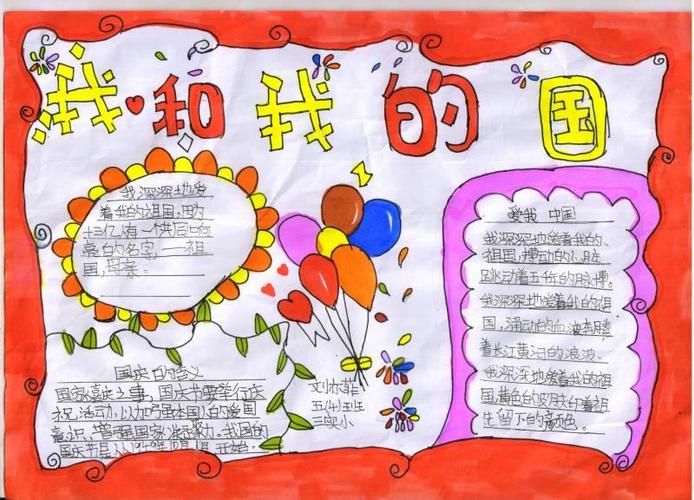 我和我的国
我深深地爱
着我的祖国,因为
十三亿有一个共同
亮的名字,——祖
国,母亲。
爱我 中国
我深深地爱着我的
祖国,搏动的心脏
跳动着五千年的脉搏。
我深深地爱着我的祖
国,涌动的血液奔腾
着长江黄河的浪波。
我深深地爱着我的祖
国,黄色的皮肤印着祖
先留下的颜色。
国庆的含义
国家喜庆之事,国庆节要举行庆
祝活动,以加强本国人的爱国
意识,增强国家凝聚力。我国的
国庆节是从1949年10月1日开始。
五(4)班
三实小